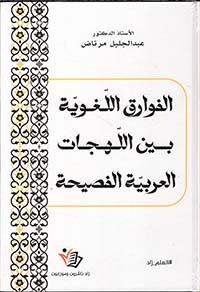 الأستاذ الدكتور
عبدالجليل مرتاض
الفوارق اللغوية
بين اللهجات
العربية الفصيحة
#العلم_زاد
زاد ناشرون وموزعون